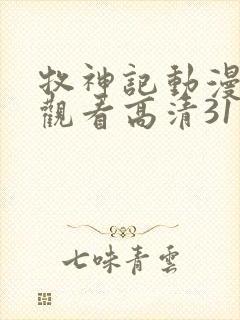 牧神記動漫
觀看高清31
七味青雲